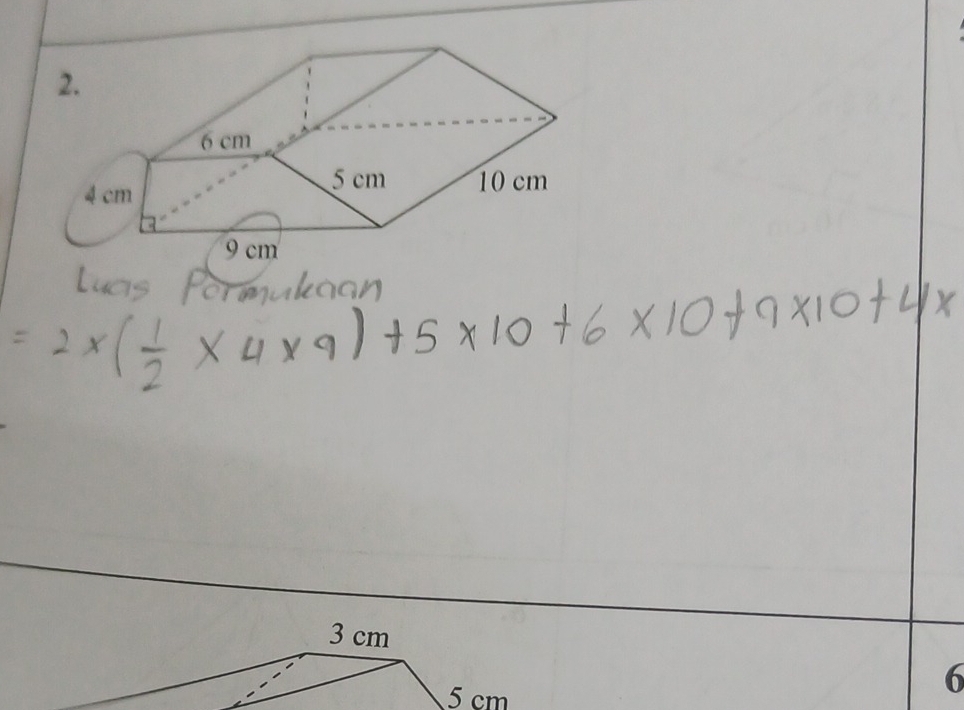 2.
6 cm
4 cm
5 cm
10 cm
9 cm
Luas Permukaan
= 2 × (1/2 × 4 × 9) + 5 × 10 + 6 × 10 + 9 × 10 + 4 ×
3 cm
5 cm
6